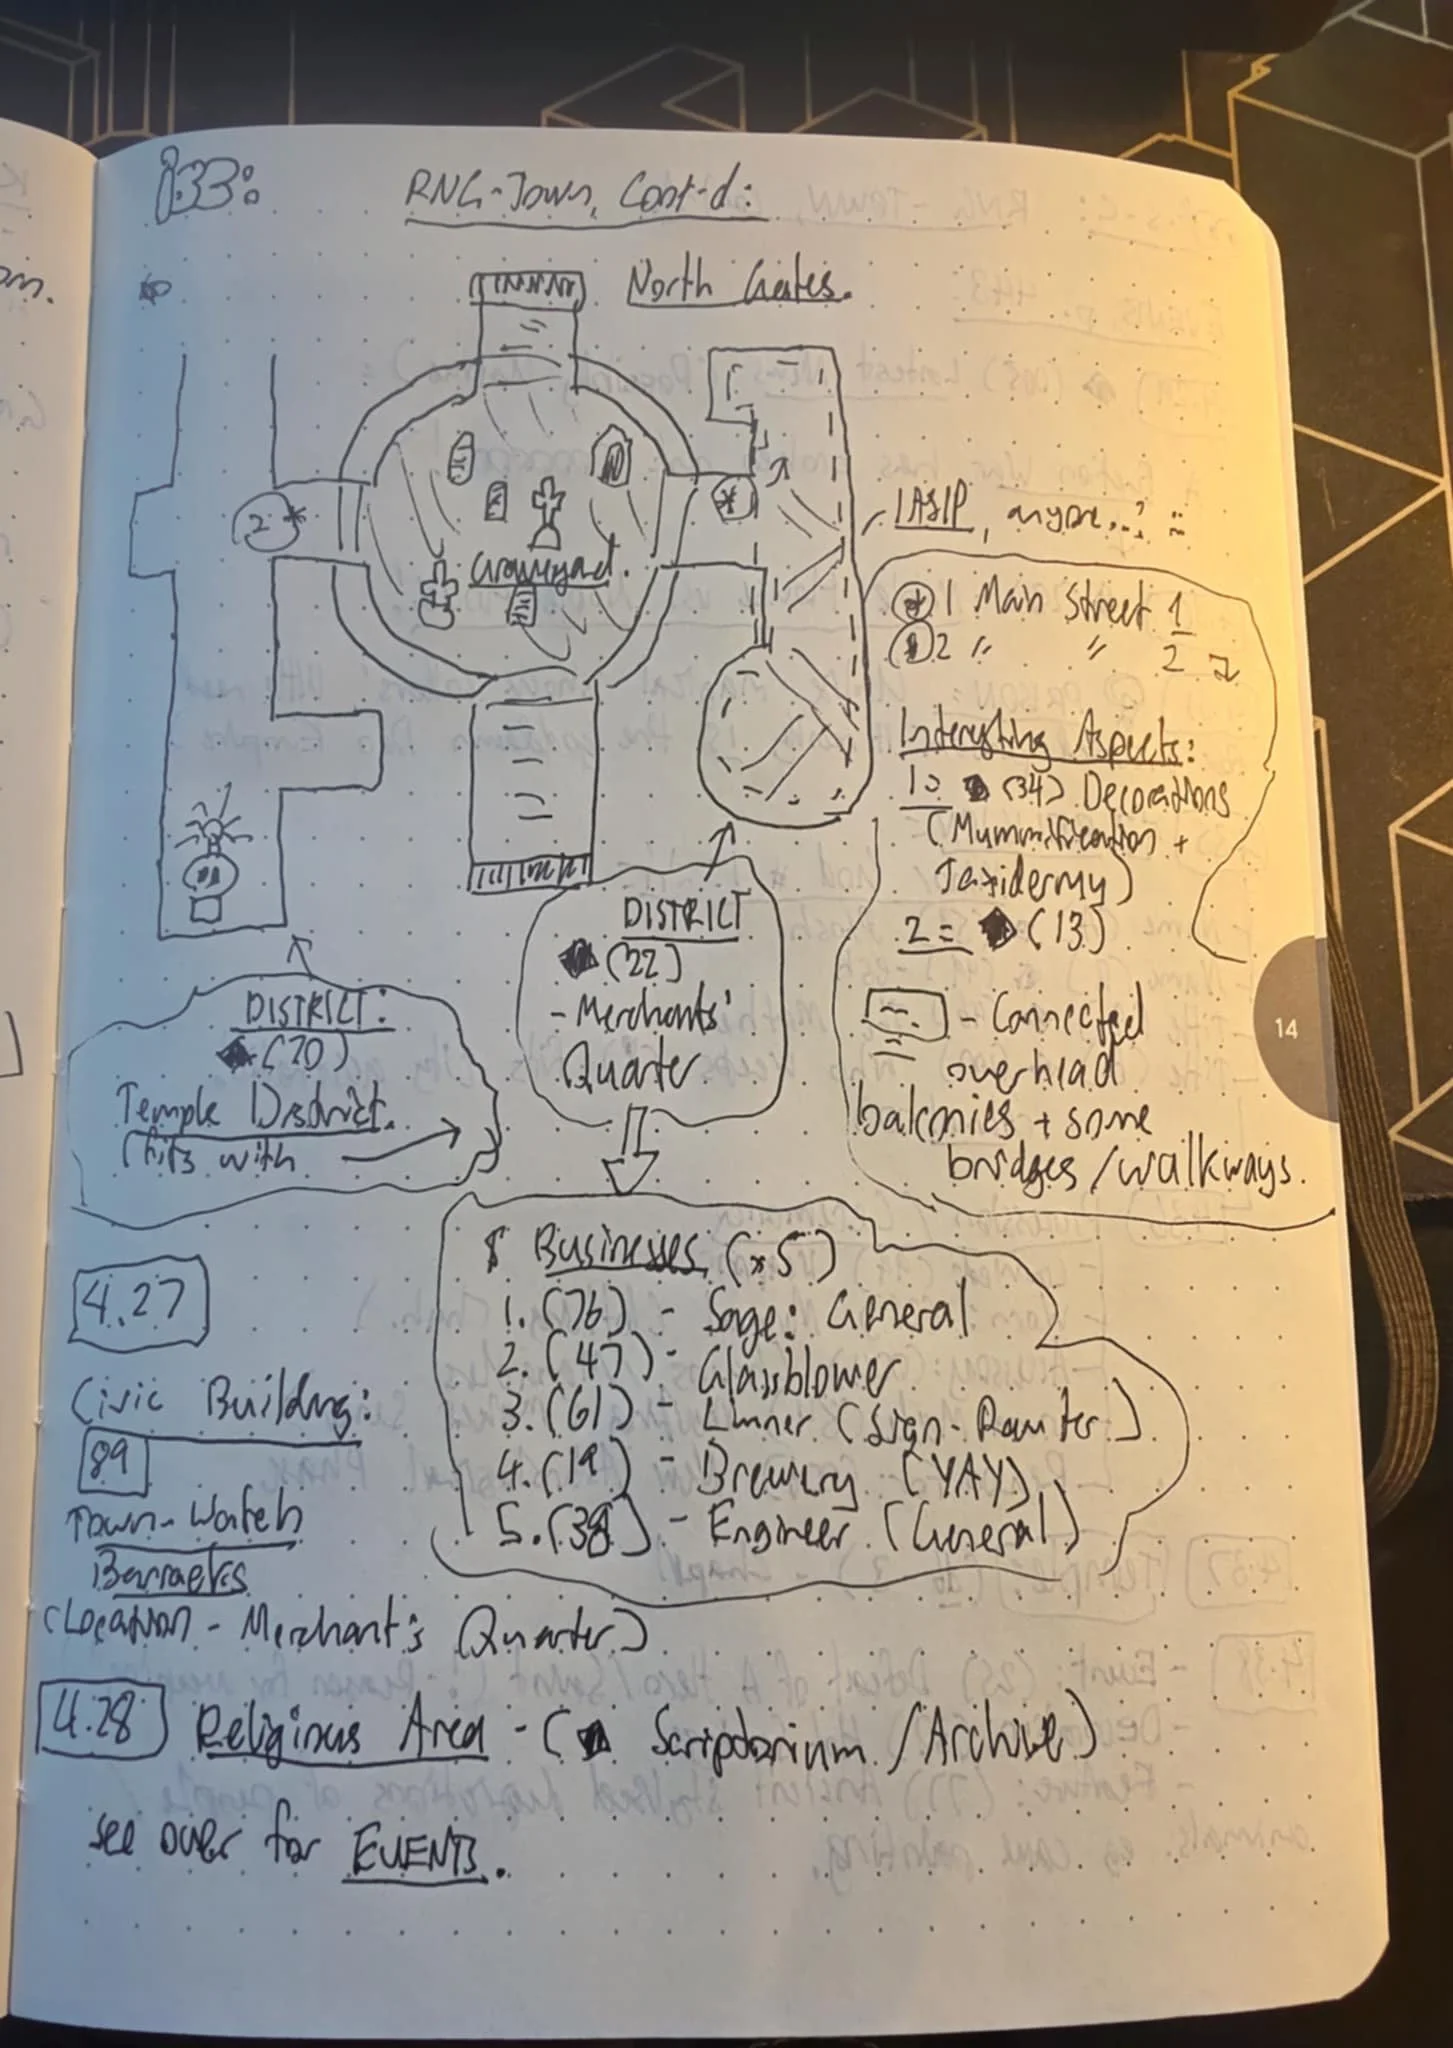 133:
RNG-Town, Cont-d:
North Gates.
2*
*
Graveyard.
IASIP, anyone..?
* 1 Main Street 1
2 " " 2
Interesting Aspects:
1= (34) Decorations
(Mummification +
Taxidermy)
2= (13)
- Connected
overhead
balconies + some
bridges/walkways.
14
DISTRICT
(22)
- Merchants'
Quarter
DISTRICT:
(70)
Temple District.
(fits with
$ Businesses (x5)
1. (76) - Sage: General
2. (47) - Glassblower
3. (61) - Limner (Sign-Painter)
4. (19) - Brewery (YAY)
5. (38) - Engineer (General)
4.27
Civic Building:
89
Town-Watch
Barracks
(Location - Merchant's Quarter)
4.28 Religious Area - ( Scriptorium / Archive)
see over for EVENTS.